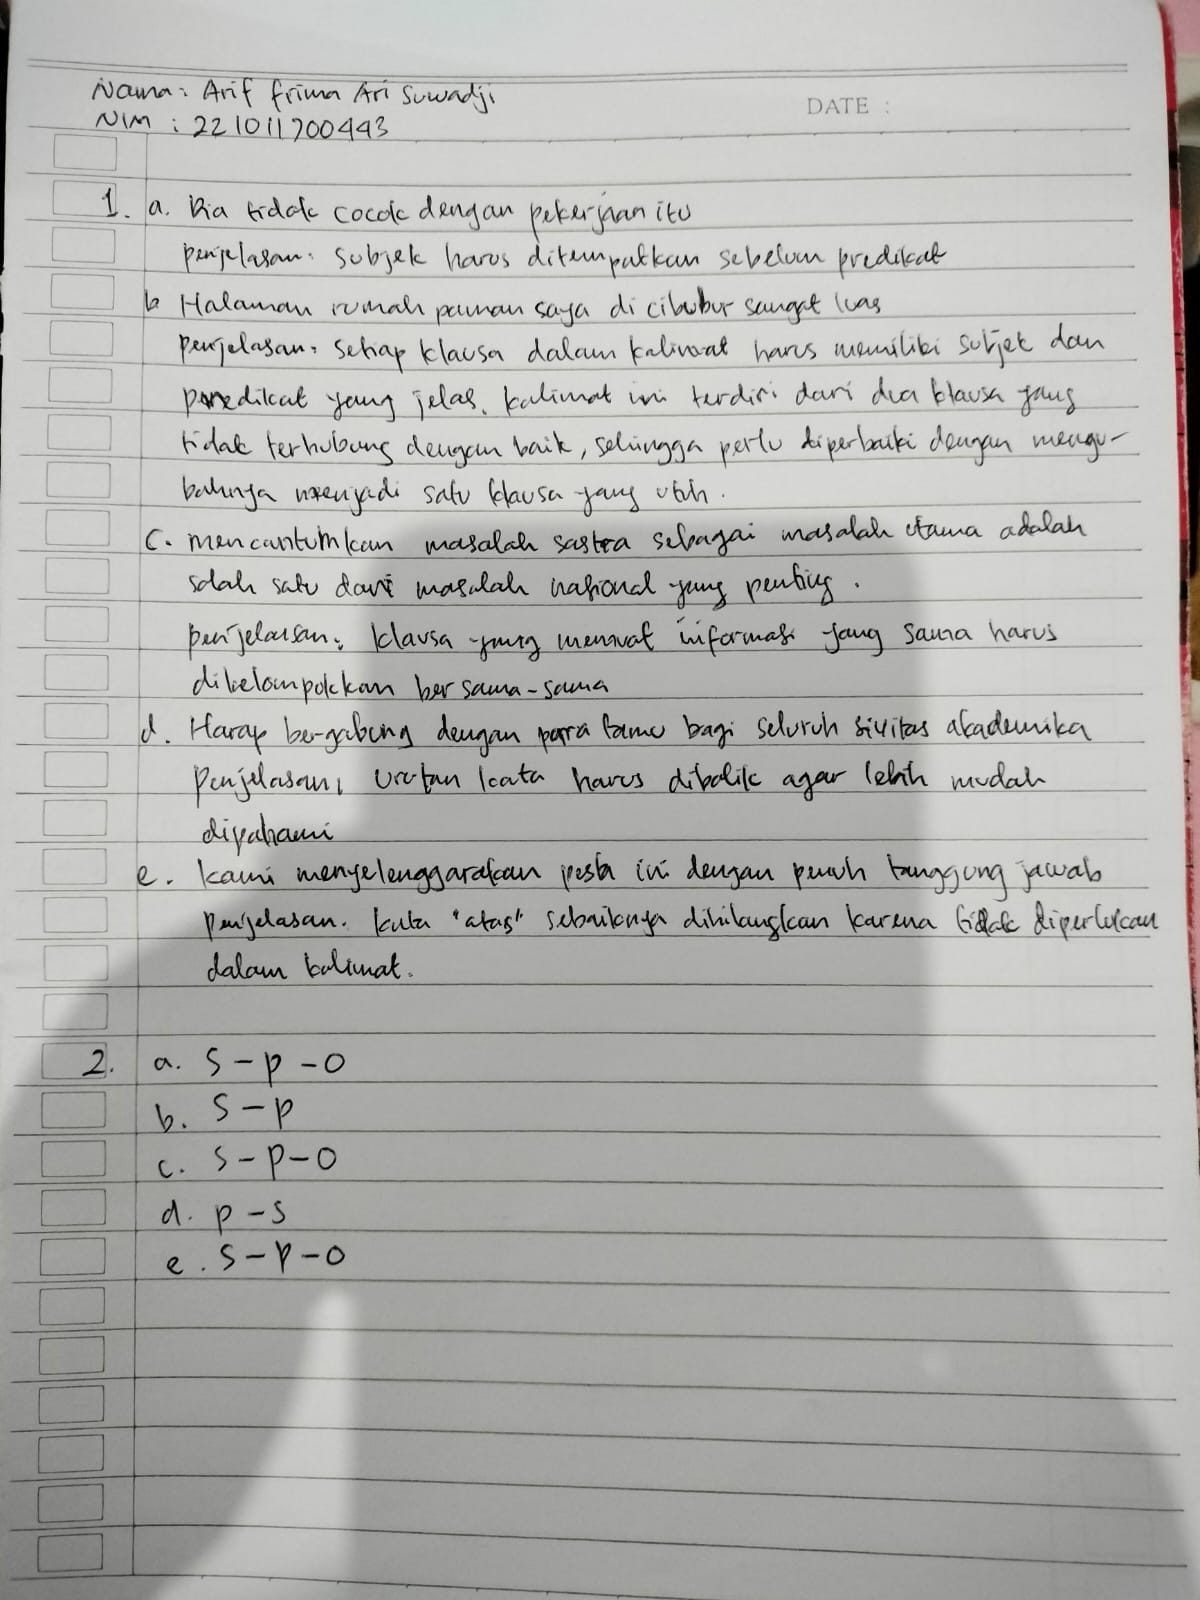 Nama: Arif frima Ari Suwadji
NIM : 221011700443
DATE :
1. a. Dia tidak cocok dengan pekerjaan itu
penjelasan: Subjek harus ditempatkan sebelum predikat
b Halaman rumah paman saya di cibubur sangat luas
penjelasan: setiap klausa dalam kalimat harus memiliki subjek dan
predikat yang jelas. kalimat ini terdiri dari dua klausa yang
tidak terhubung dengan baik, sehingga perlu diperbaiki dengan mengu-
bahnya menjadi satu klausa yang utuh.
c. mencantumkan masalah sastra sebagai masalah utama adalah
salah satu dari masalah nasional yang penting.
penjelasan: klausa yang memuat informasi yang sama harus
dikelompokkan bersama-sama
d. Harap bergabung dengan para tamu bagi seluruh sivitas akademika
Penjelasan: urutan kata harus dibalik agar lebih mudah
dipahami
e. kami menyelenggarakan pesta ini dengan penuh tanggung jawab
penjelasan. kata "atas" sebaiknya dihilangkan karena tidak diperlukan
dalam kalimat.
2. a. S-p-o
b. S-p
c. S-p-o
d. p-s
e. S-p-o